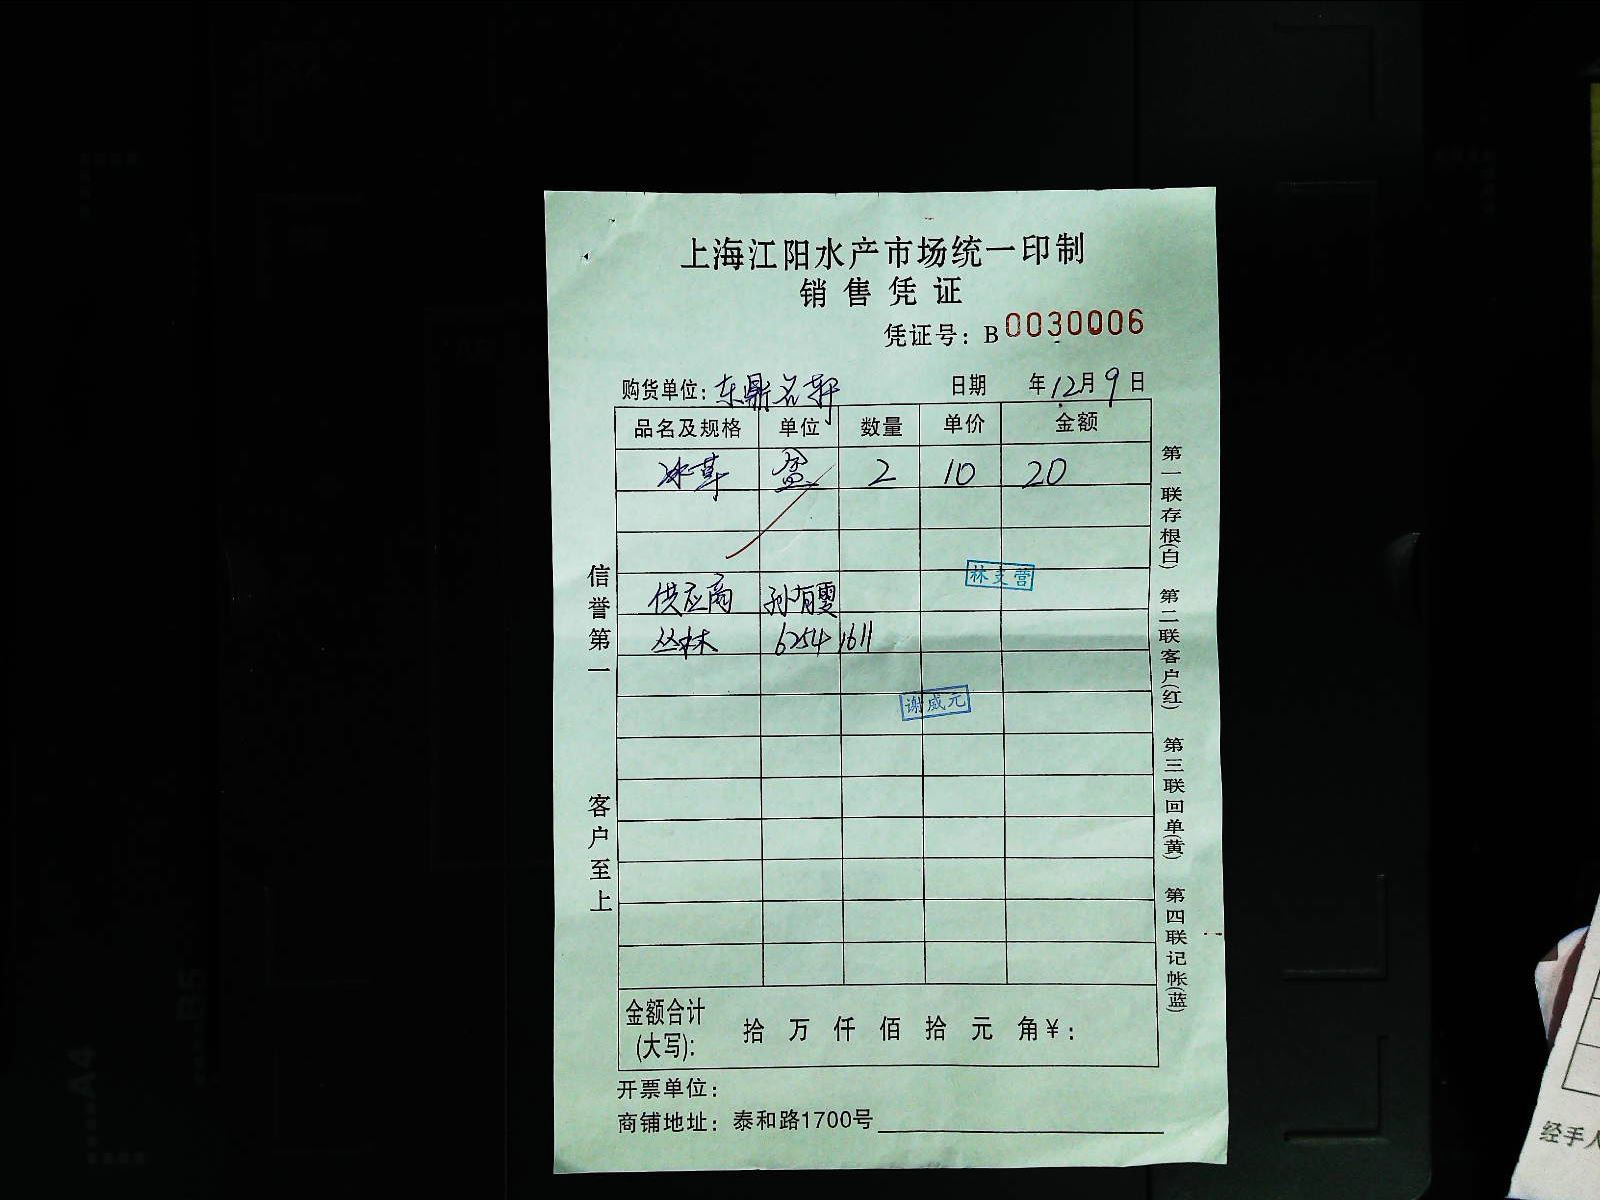 上海江阳水产市场统一印制
销售凭证
凭证号：B 0030006
购货单位：东鼎名轩 日期 年12月9日
品名及规格 单位 数量 单价 金额
冰草 盒 2 10 20
林支营
供应商 孙有雯
丛林 6254 1611
谢威元
信誉第一 客户至上
第一联存根(白) 第二联客户(红) 第三联回单(黄) 第四联记帐(蓝)
金额合计(大写)： 拾 万 仟 佰 拾 元 角 ¥：
开票单位：
商铺地址：泰和路1700号
经手人
A4
B5